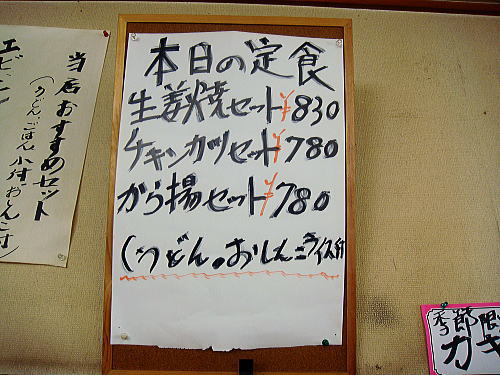 本日の定食
生姜焼セット¥830
チキンカツセット¥780
から揚セット¥780
(うどん。おしんこライス付
当店おすすめセット
(うどん、ごはん、小付、おしんこ付)
エビ
季節限
カキ